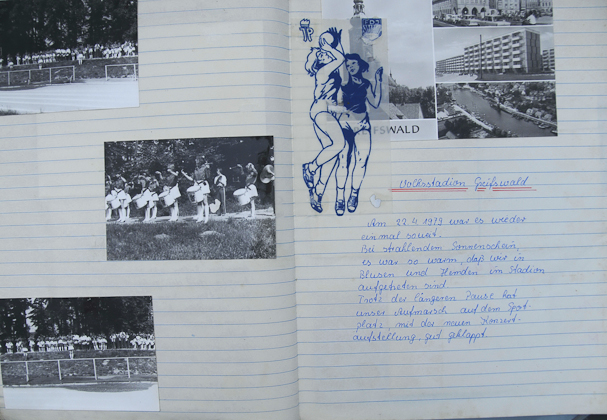 TP
FSWALD
Volksstadion Greifswald
Am 22.4.1979 war es wieder
einmal soweit.
Bei strahlendem Sonnenschein,
es war so warm, daß wir in
Blusen und Hemden im Stadion
aufgetreten sind.
Trotz der längeren Pause hat
unser Aufmarsch auf dem Sport-
platz, mit der neuen Konzert-
aufstellung, gut geklappt.